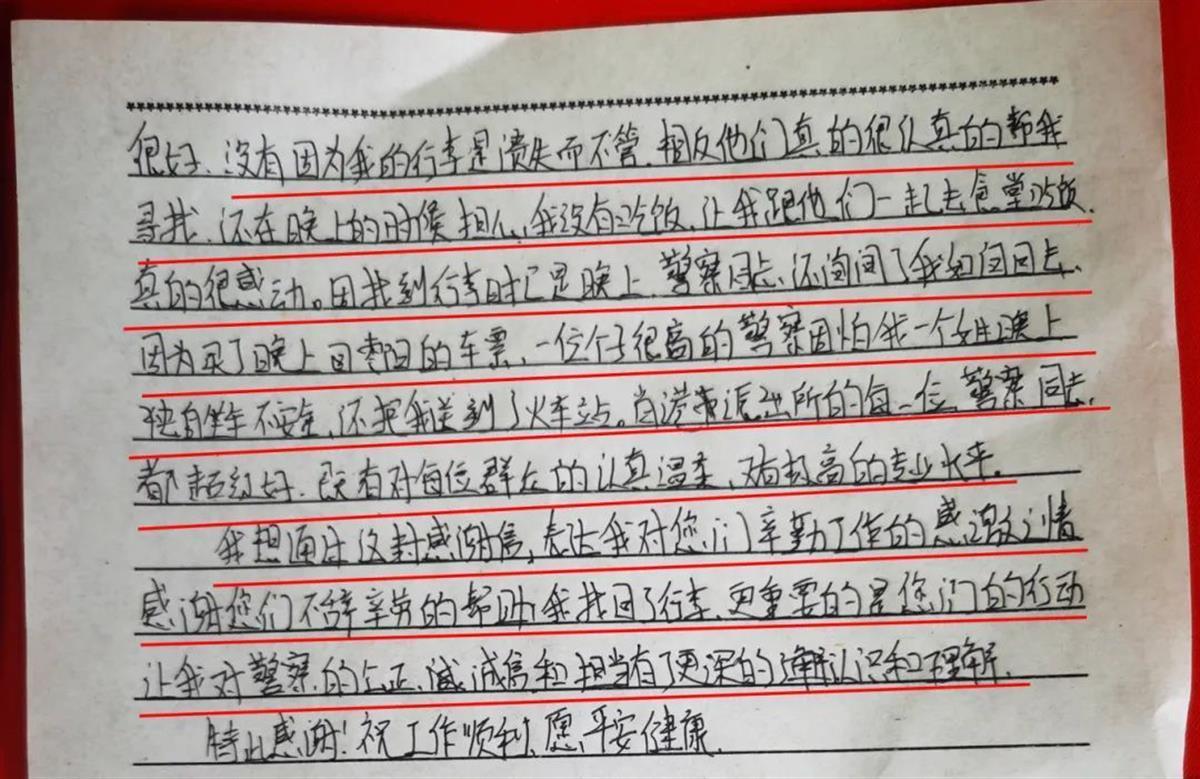 很好、没有因为我的行李是遗失而不管、相反他们真的很认真的帮我
寻找、还在晚上的时候担心我没有吃饭、让我跟他们一起去食堂吃饭、
真的很感动。因找到行李时已是晚上、警察同志还询问了我如何回去、
因为买了晚上回枣阳的车票、一位个子很高的警察因怕我一个女生晚上
独自坐车不安全、还把我送到了火车站。肖港来派出所的每一位警察同志、
都超级好、既有对每位群众的认真温柔、又有极高的专业水平。
我想通过这封感谢信、表达我对您们辛勤工作的感激之情
感谢您们不辞辛劳的帮助我找回了行李、更重要的是您们的行动
让我对警察的公正、诚信和担当有了更深的认识和理解。
特此感谢！祝工作顺利、愿平安健康。